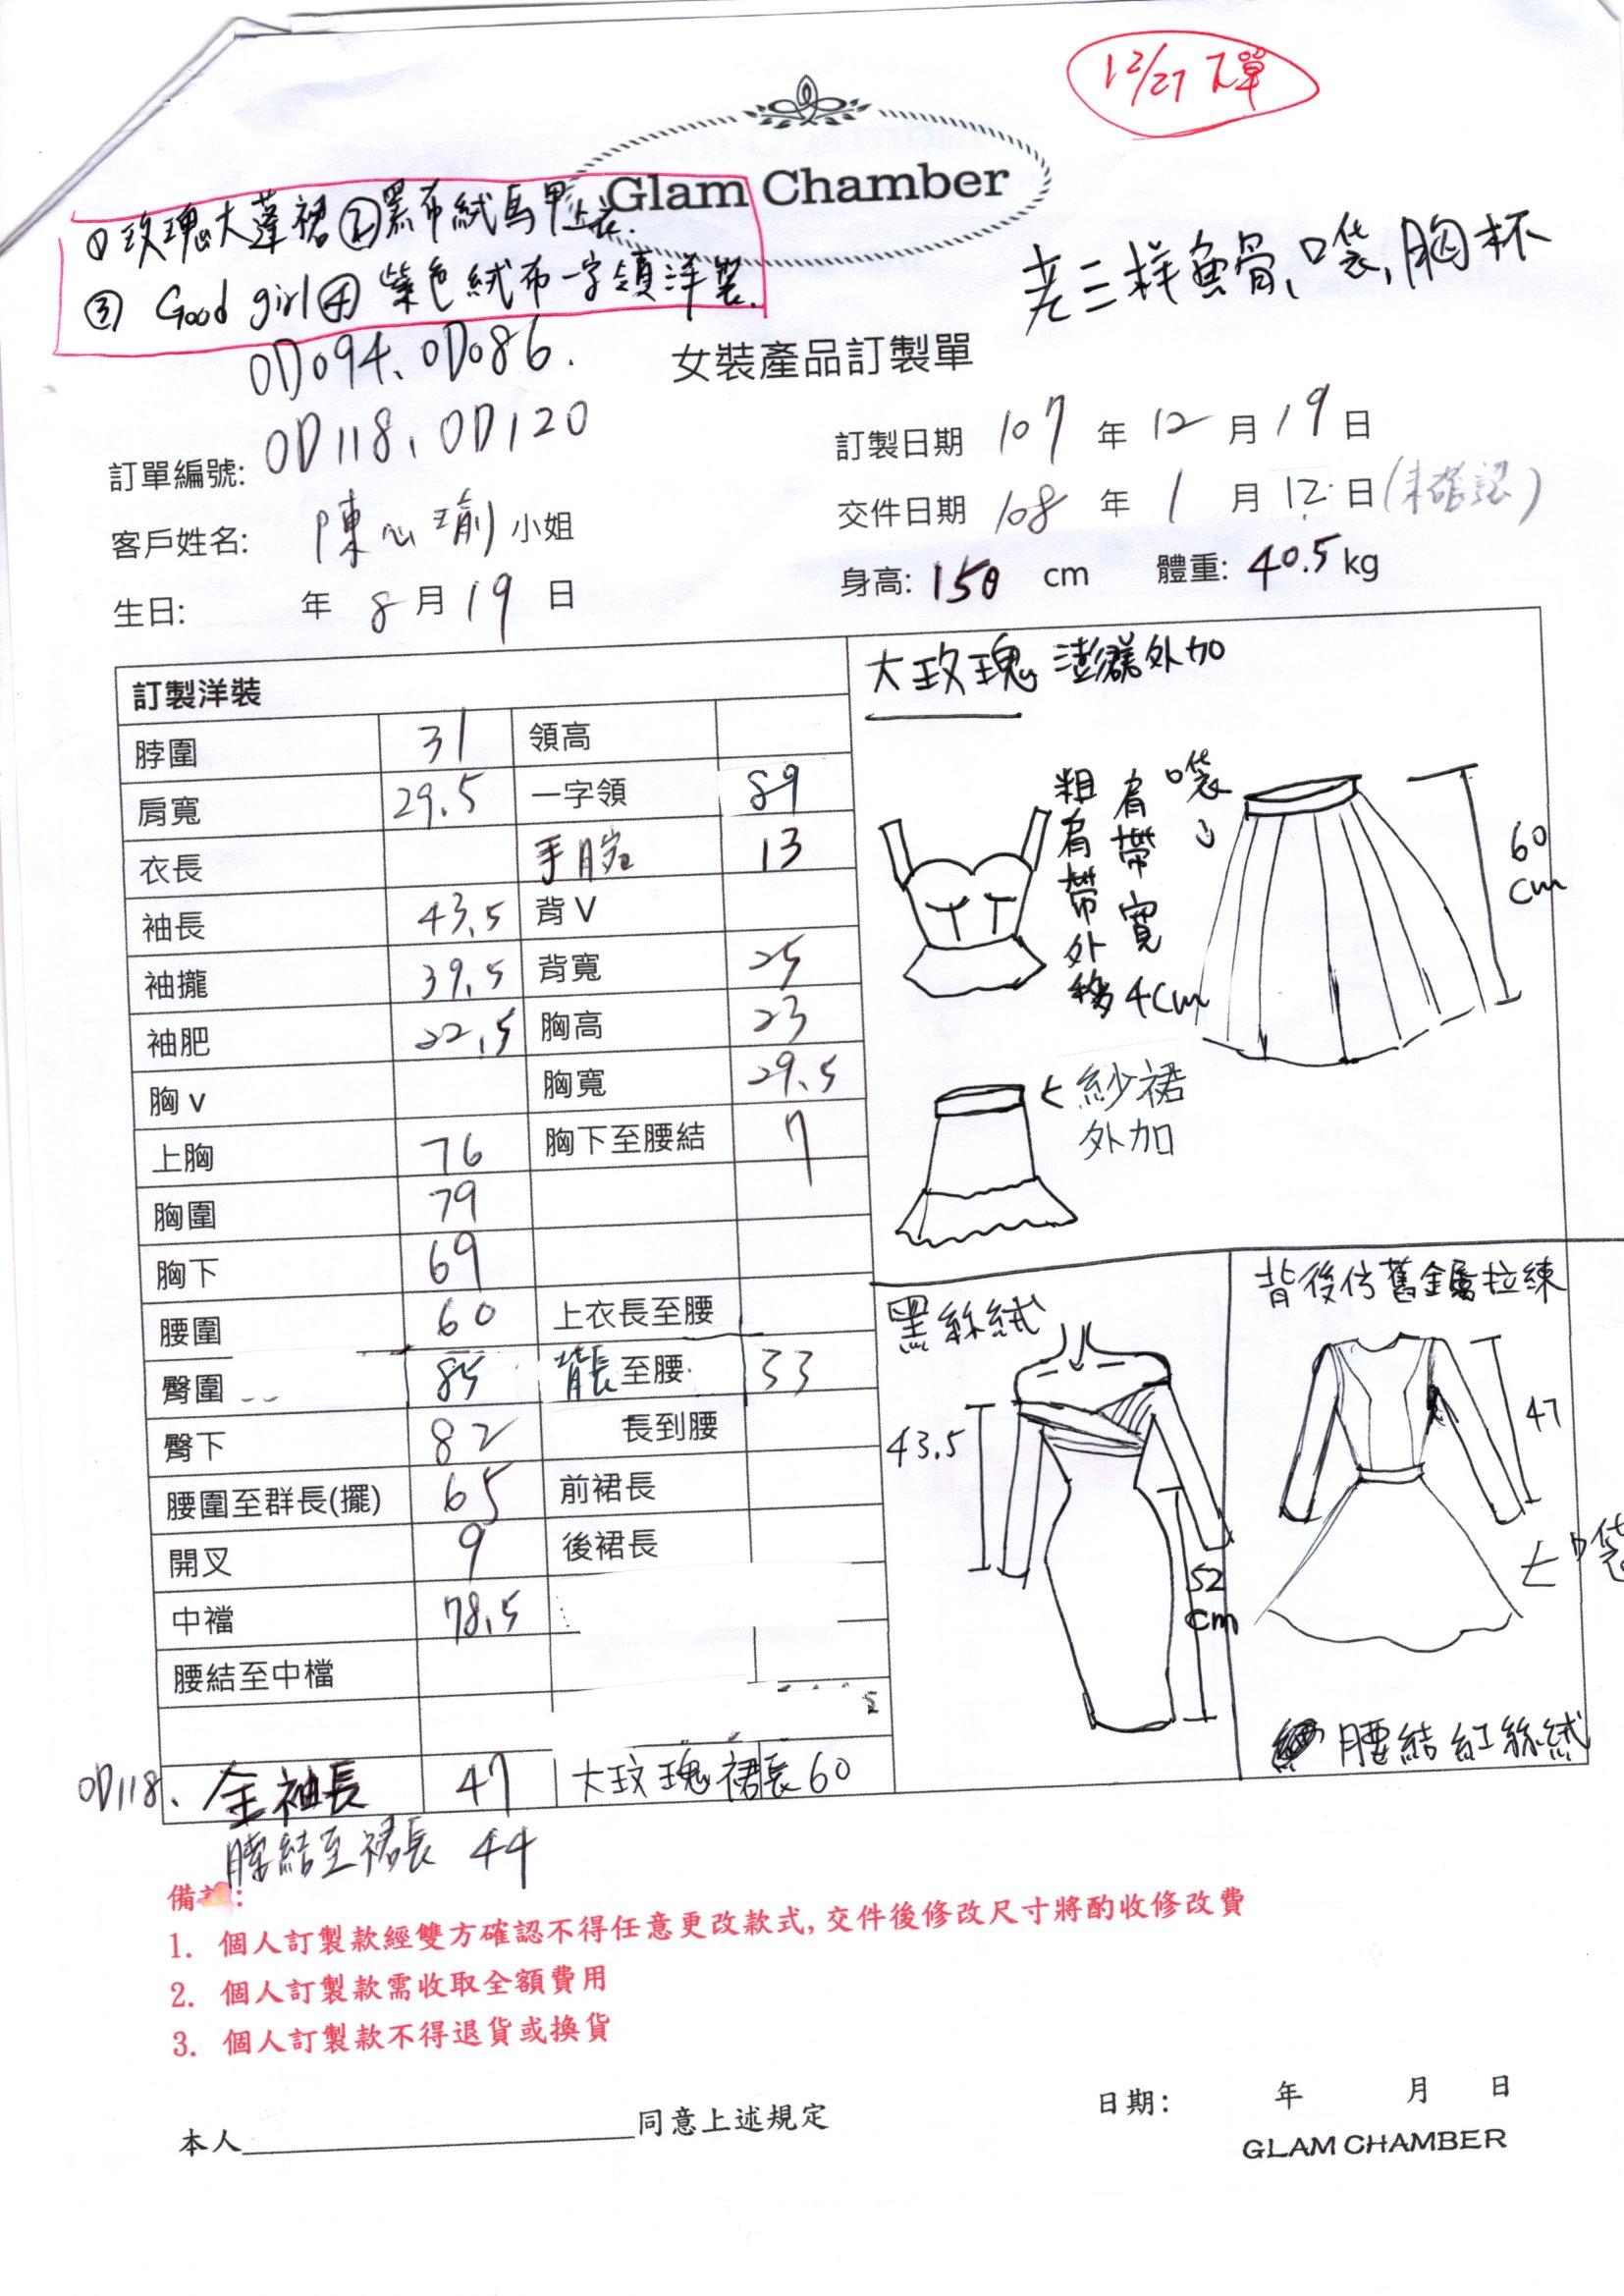 12/27 下單
Glam Chamber
①玫瑰大蓬裙②黑布絨馬甲上衣.
③ Good girl④ 紫色絨布一字領洋裝.
老三样魚骨、口袋,胸杯
OD094、OD086.
女裝產品訂製單
訂單編號: OD118、OD120
訂製日期 107 年 12 月 19 日
客戶姓名: 陳心瑜 小姐
交件日期 108 年 1 月 12 日(未確認)
生日: 年 8 月 19 日
身高: 150 cm 體重: 40.5 kg
訂製洋裝
脖圍 31 領高
肩寬 29.5 一字領 89
衣長 手腕 13
袖長 43.5 背 V
袖攏 39.5 背寬 25
袖肥 22.5 胸高 23
胸 v 胸寬 29.5
上胸 76 胸下至腰結 7
胸圍 79
胸下 69
腰圍 60 上衣長至腰
臀圍 85 背長至腰 33
臀下 82 長到腰
腰圍至群長(擺) 65 前裙長
開叉 9 後裙長
中襠 78.5
腰結至中檔
OD118、全袖長 47 大玫瑰裙長60
腰結至裙長 44
大玫瑰 澎裙外加
粗肩帶外移
肩帶寬4cm
口袋
60
cm
紗裙
外加
黑絲絨
43.5
52
cm
背後仿舊金屬拉練
47
口袋
腰結紅絲絨
備註:
1. 個人訂製款經雙方確認不得任意更改款式,交件後修改尺寸將酌收修改費
2. 個人訂製款需收取全額費用
3. 個人訂製款不得退貨或換貨
本人 同意上述規定
日期: 年 月 日
GLAM CHAMBER